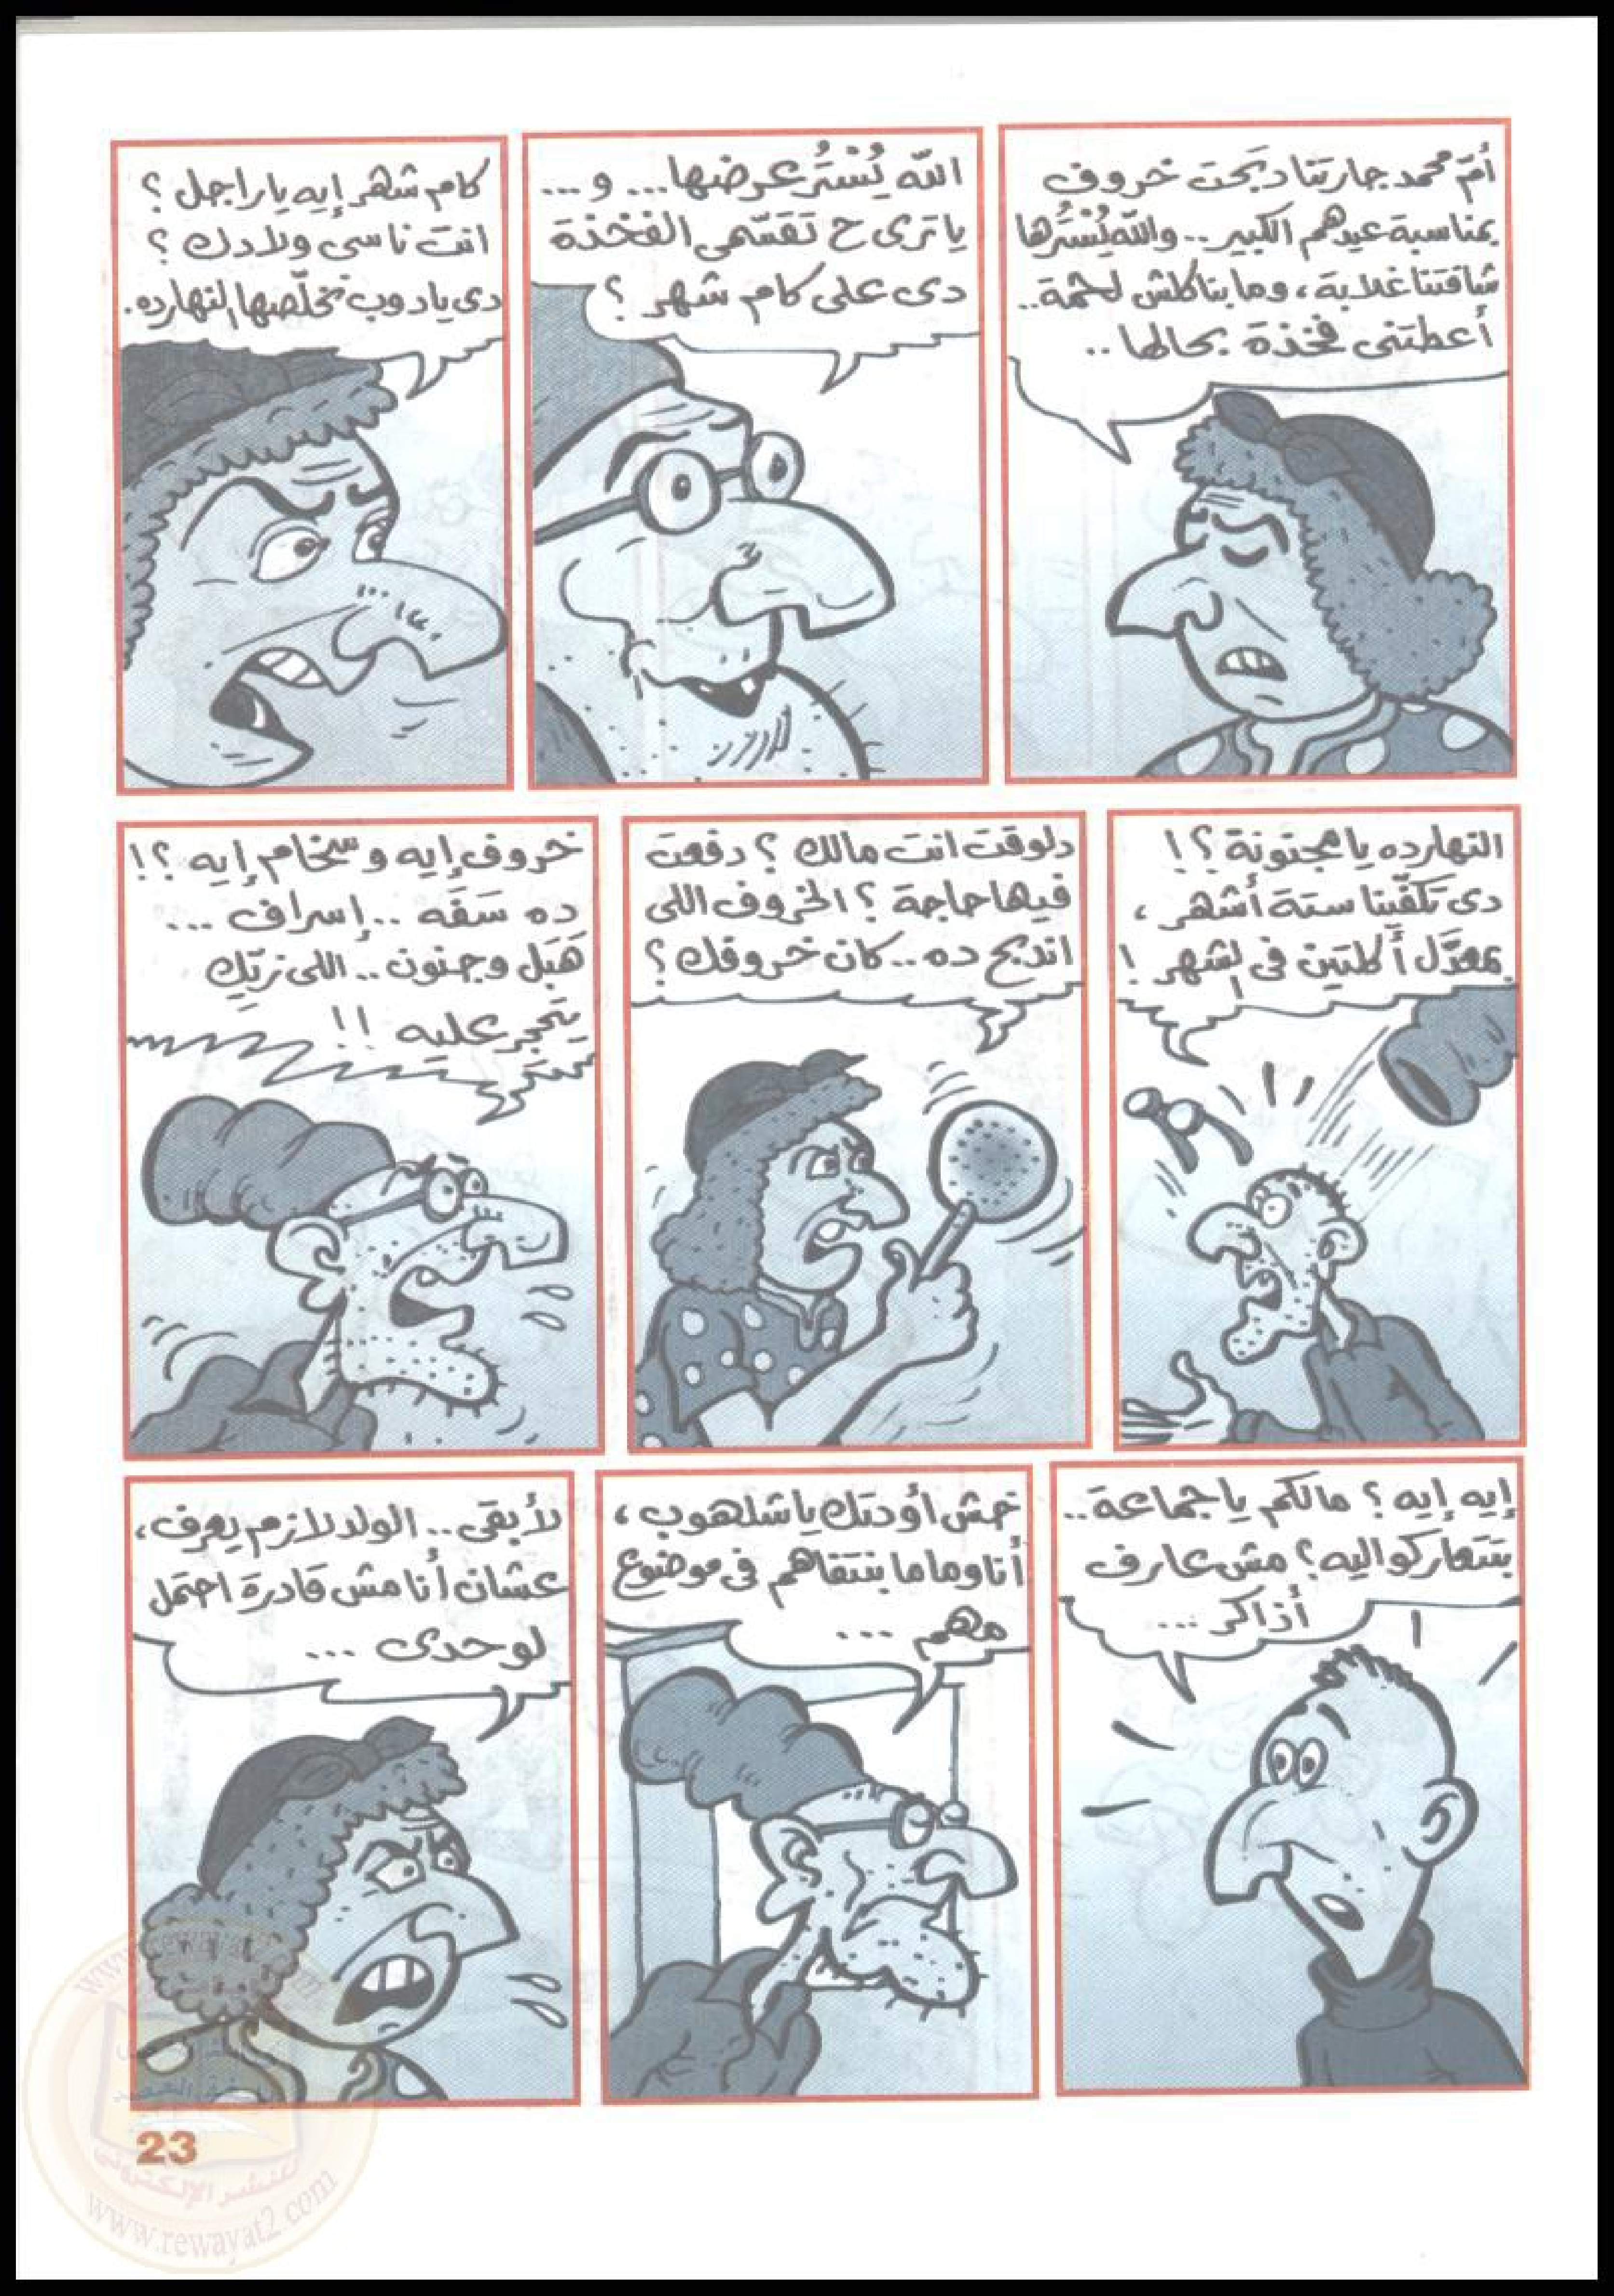 أم محمد جارتنا دبحت خروف
بمناسبة عيدهم الكبير.. والله يُسْتُرها
شافتنا غلابة، وما بناكلش لحمة..
أعطتنى فخذة بحالها..
الله يُسْتُر عرضها... و...
يا ترى ح تقسّمى الفخذة
دى على كام شهر؟
كام شهر إيه ياراجل؟
انت ناسى ولادك؟
دى يادوب نخلّصها النهارده.
النهارده يا مجنونة؟!
دى تكفّينا ستة أشهر،
بمعدّل أكلتين فى الشهر!
دلوقت انت مالك؟ دفعت
فيها حاجة؟ الخروف اللى
اندبح ده.. كان خروفك؟
خروف إيه وسخام إيه؟!
ده سَفَه.. إسراف...
هَبَل وجنون.. اللى زيّك
يتحجر عليه!!
إيه إيه؟ مالكم يا جماعة..
بتتعاركوا ليه؟ مش عارف
أذاكر...
خش أودتك يا شلهوب،
أنا وماما بنتفاهم فى موضوع
مهم...
لأ بقى.. الولد لازم يعرف،
عشان أنا مش قادرة احتمل
لوحدى...
23
www.rewayat2.com
للنشر الإلكترونى
www.rewayat2.com